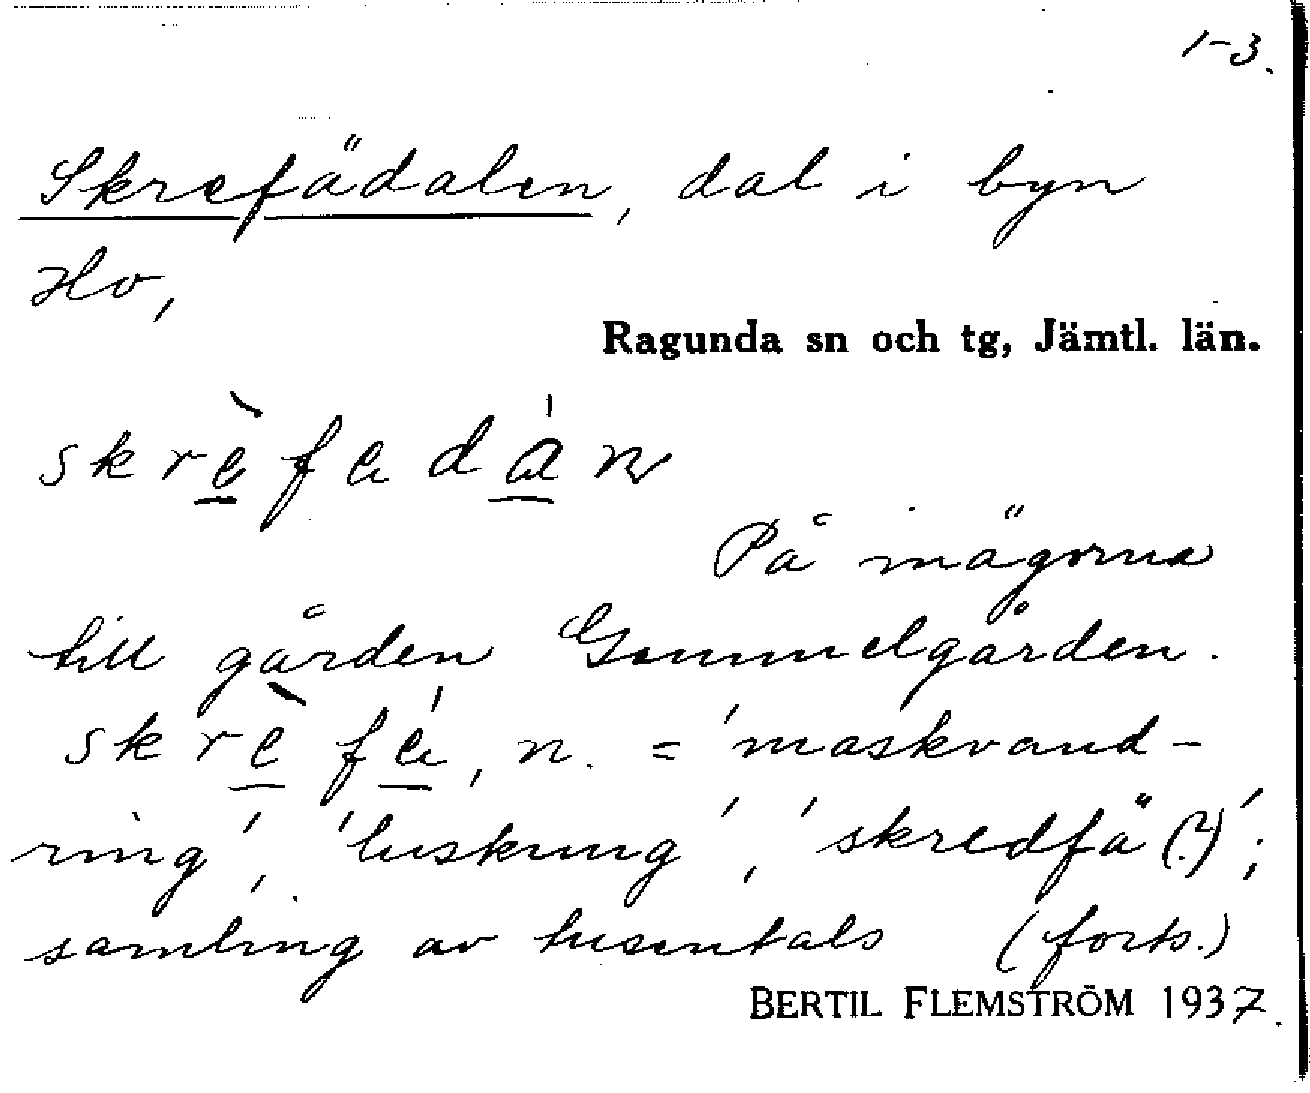 1-3.
Skrefädalen, dal i byn
Hov,
Ragunda sn och tg, Jämtl. län.
skrèfedán
På mägorna
till gården Gammelgården.
skrèfé, n. = 'maskvand-
ring', 'luskung', 'skredfä(?)';
samling av tusentals (forts.)
BERTIL FLEMSTRÖM 1937.